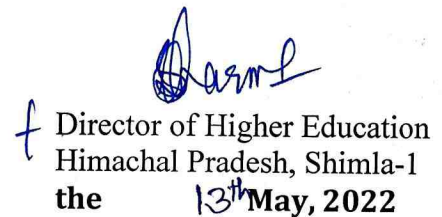 Director of Higher Education
Himachal Pradesh, Shimla-1
the 13th May, 2022